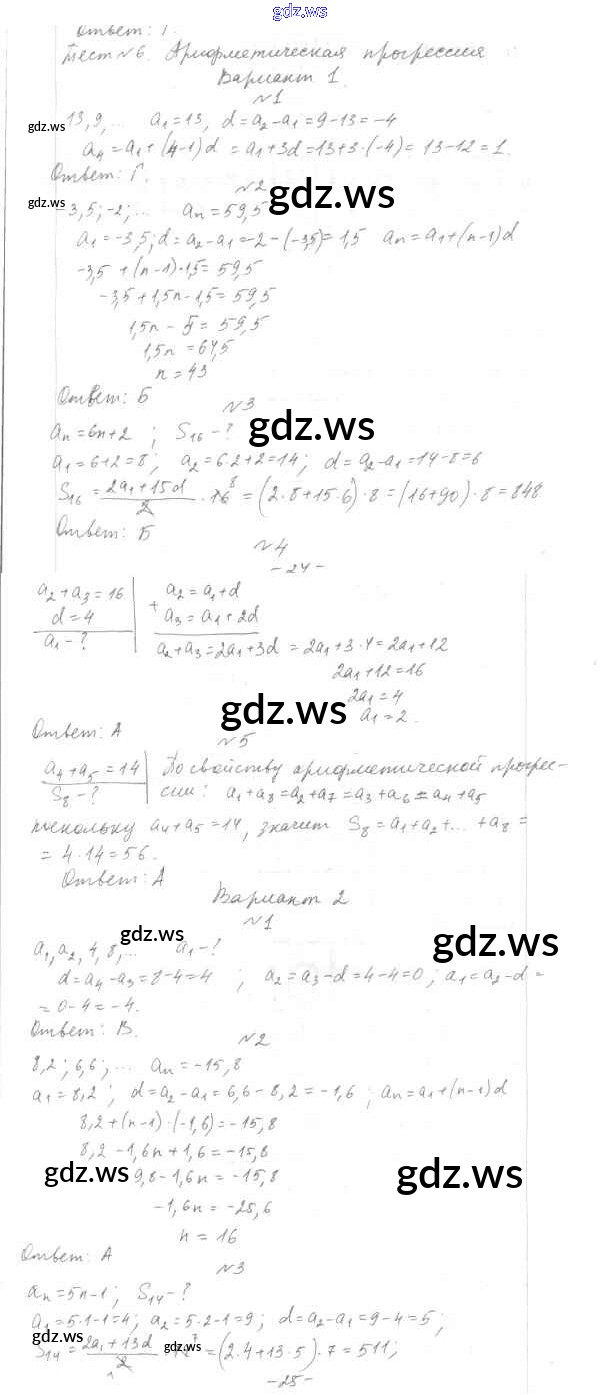 gdz.ws
Ответ: Г.
Тест №6. Арифметическая прогрессия
Вариант 1.
№1
gdz.ws
13, 9, ... a₁=13, d=a₂-a₁=9-13=-4
a₄=a₁+(4-1)d=a₁+3d=13+3·(-4)=13-12=1.
Ответ: Г.
№2
gdz.ws
gdz.ws
-3,5; -2; ... aₙ=59,5
a₁=-3,5; d=a₂-a₁=-2-(-3,5)=1,5 aₙ=a₁+(n-1)d
-3,5+(n-1)·1,5=59,5
-3,5+1,5n-1,5=59,5
1,5n-5=59,5
1,5n=64,5
n=43
Ответ: Б
№3
gdz.ws
aₙ=6n+2; S₁₆-?
a₁=6+2=8; a₂=6·2+2=14; d=a₂-a₁=14-8=6
S₁₆=(2a₁+15d)/2·16⁸=(2·8+15·6)·8=(16+90)·8=848
Ответ: Б
№4
-24-
a₂+a₃=16 a₂=a₁+d
d=4 + a₃=a₁+2d
a₁-? a₂+a₃=2a₁+3d=2a₁+3·4=2a₁+12
2a₁+12=16
2a₁=4
a₁=2.
gdz.ws
Ответ: А
№5
a₄+a₅=14 По свойству арифметической прогрес-
S₈-? сии: a₁+a₈=a₂+a₇=a₃+a₆=a₄+a₅
поскольку a₄+a₅=14, значит S₈=a₁+a₂+...+a₈=
=4·14=56.
Ответ: А
Вариант 2
№1
gdz.ws
gdz.ws
a₁, a₂, 4, 8, ... a₁-?
d=a₄-a₃=8-4=4; a₂=a₃-d=4-4=0; a₁=a₂-d=
=0-4=-4.
Ответ: В.
№2
8,2; 6,6; ... aₙ=-15,8
a₁=8,2; d=a₂-a₁=6,6-8,2=-1,6; aₙ=a₁+(n-1)d
8,2+(n-1)·(-1,6)=-15,8
8,2-1,6n+1,6=-15,8
gdz.ws
9,8-1,6n=-15,8
gdz.ws
-1,6n=-25,6
n=16
Ответ: А
№3
aₙ=5n-1; S₁₄-?
a₁=5·1-1=4; a₂=5·2-1=9; d=a₂-a₁=9-4=5;
gdz.ws
gdz.ws
S₁₄=(2a₁+13d)/2·14⁷=(2·4+13·5)·7=511;
-25-